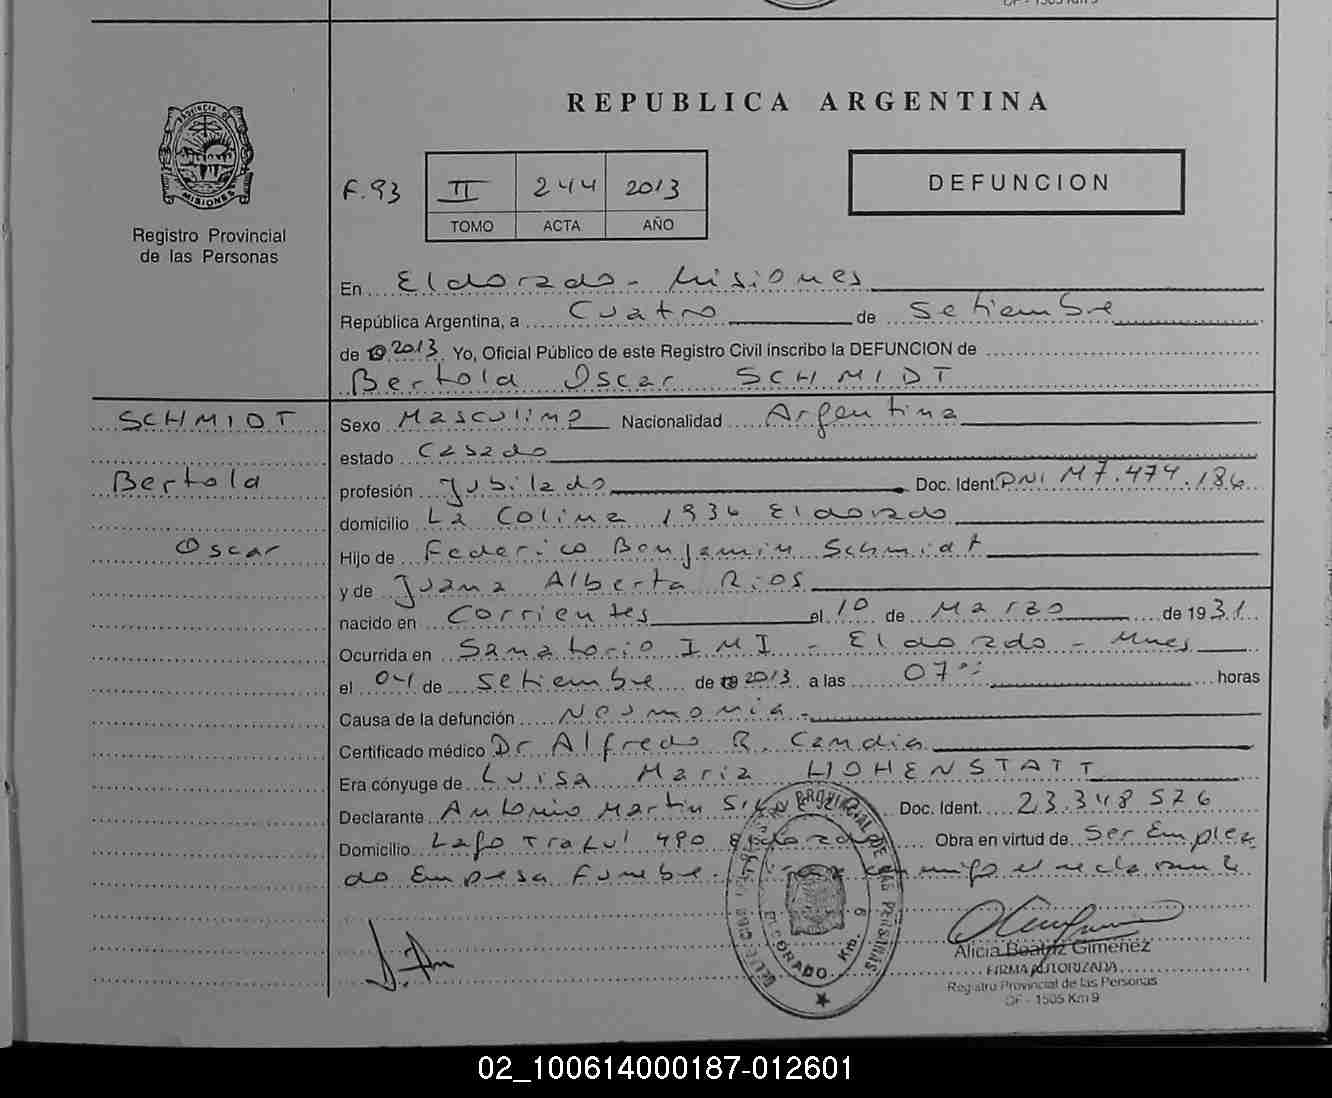 REPUBLICA ARGENTINA
PROVINCIA DE
MISIONES
Registro Provincial
de las Personas
F.93 II 244 2013
TOMO ACTA AÑO
DEFUNCION
En Eldorado - Misiones
República Argentina, a Cuatro de Setiembre
de 2013. Yo, Oficial Público de este Registro Civil inscribo la DEFUNCION de
Bertold Oscar SCHMIDT
SCHMIDT
Bertold
Oscar
Sexo Masculino Nacionalidad Argentina
estado Casado
profesión Jubilado Doc. Ident. DNI M7.474.186
domicilio La Colina 1936 Eldorado
Hijo de Federico Benjamin Schmidt
y de Juana Alberta Rios
nacido en Corrientes el 10 de Marzo de 1931
Ocurrida en Sanatorio IMI - Eldorado - Mnes
el 04 de Setiembre de 2013 a las 07 horas
Causa de la defunción Neumonia -
Certificado médico Dr Alfredo R. Candia
Era cónyuge de Luisa Maria HOHENSTATT
Declarante Antonio Martin Doc. Ident. 23.348 576
Domicilio Lago Traful 490 Eldorado Obra en virtud de Ser Emplea
do Empresa Funebre. el declarante
ELDORADO Km. 9
Alicia Beatriz Gimenez
FIRMA AUTORIZADA
Registro Provincial de las Personas
OF - 1505 Km 9
02_100614000187-012601